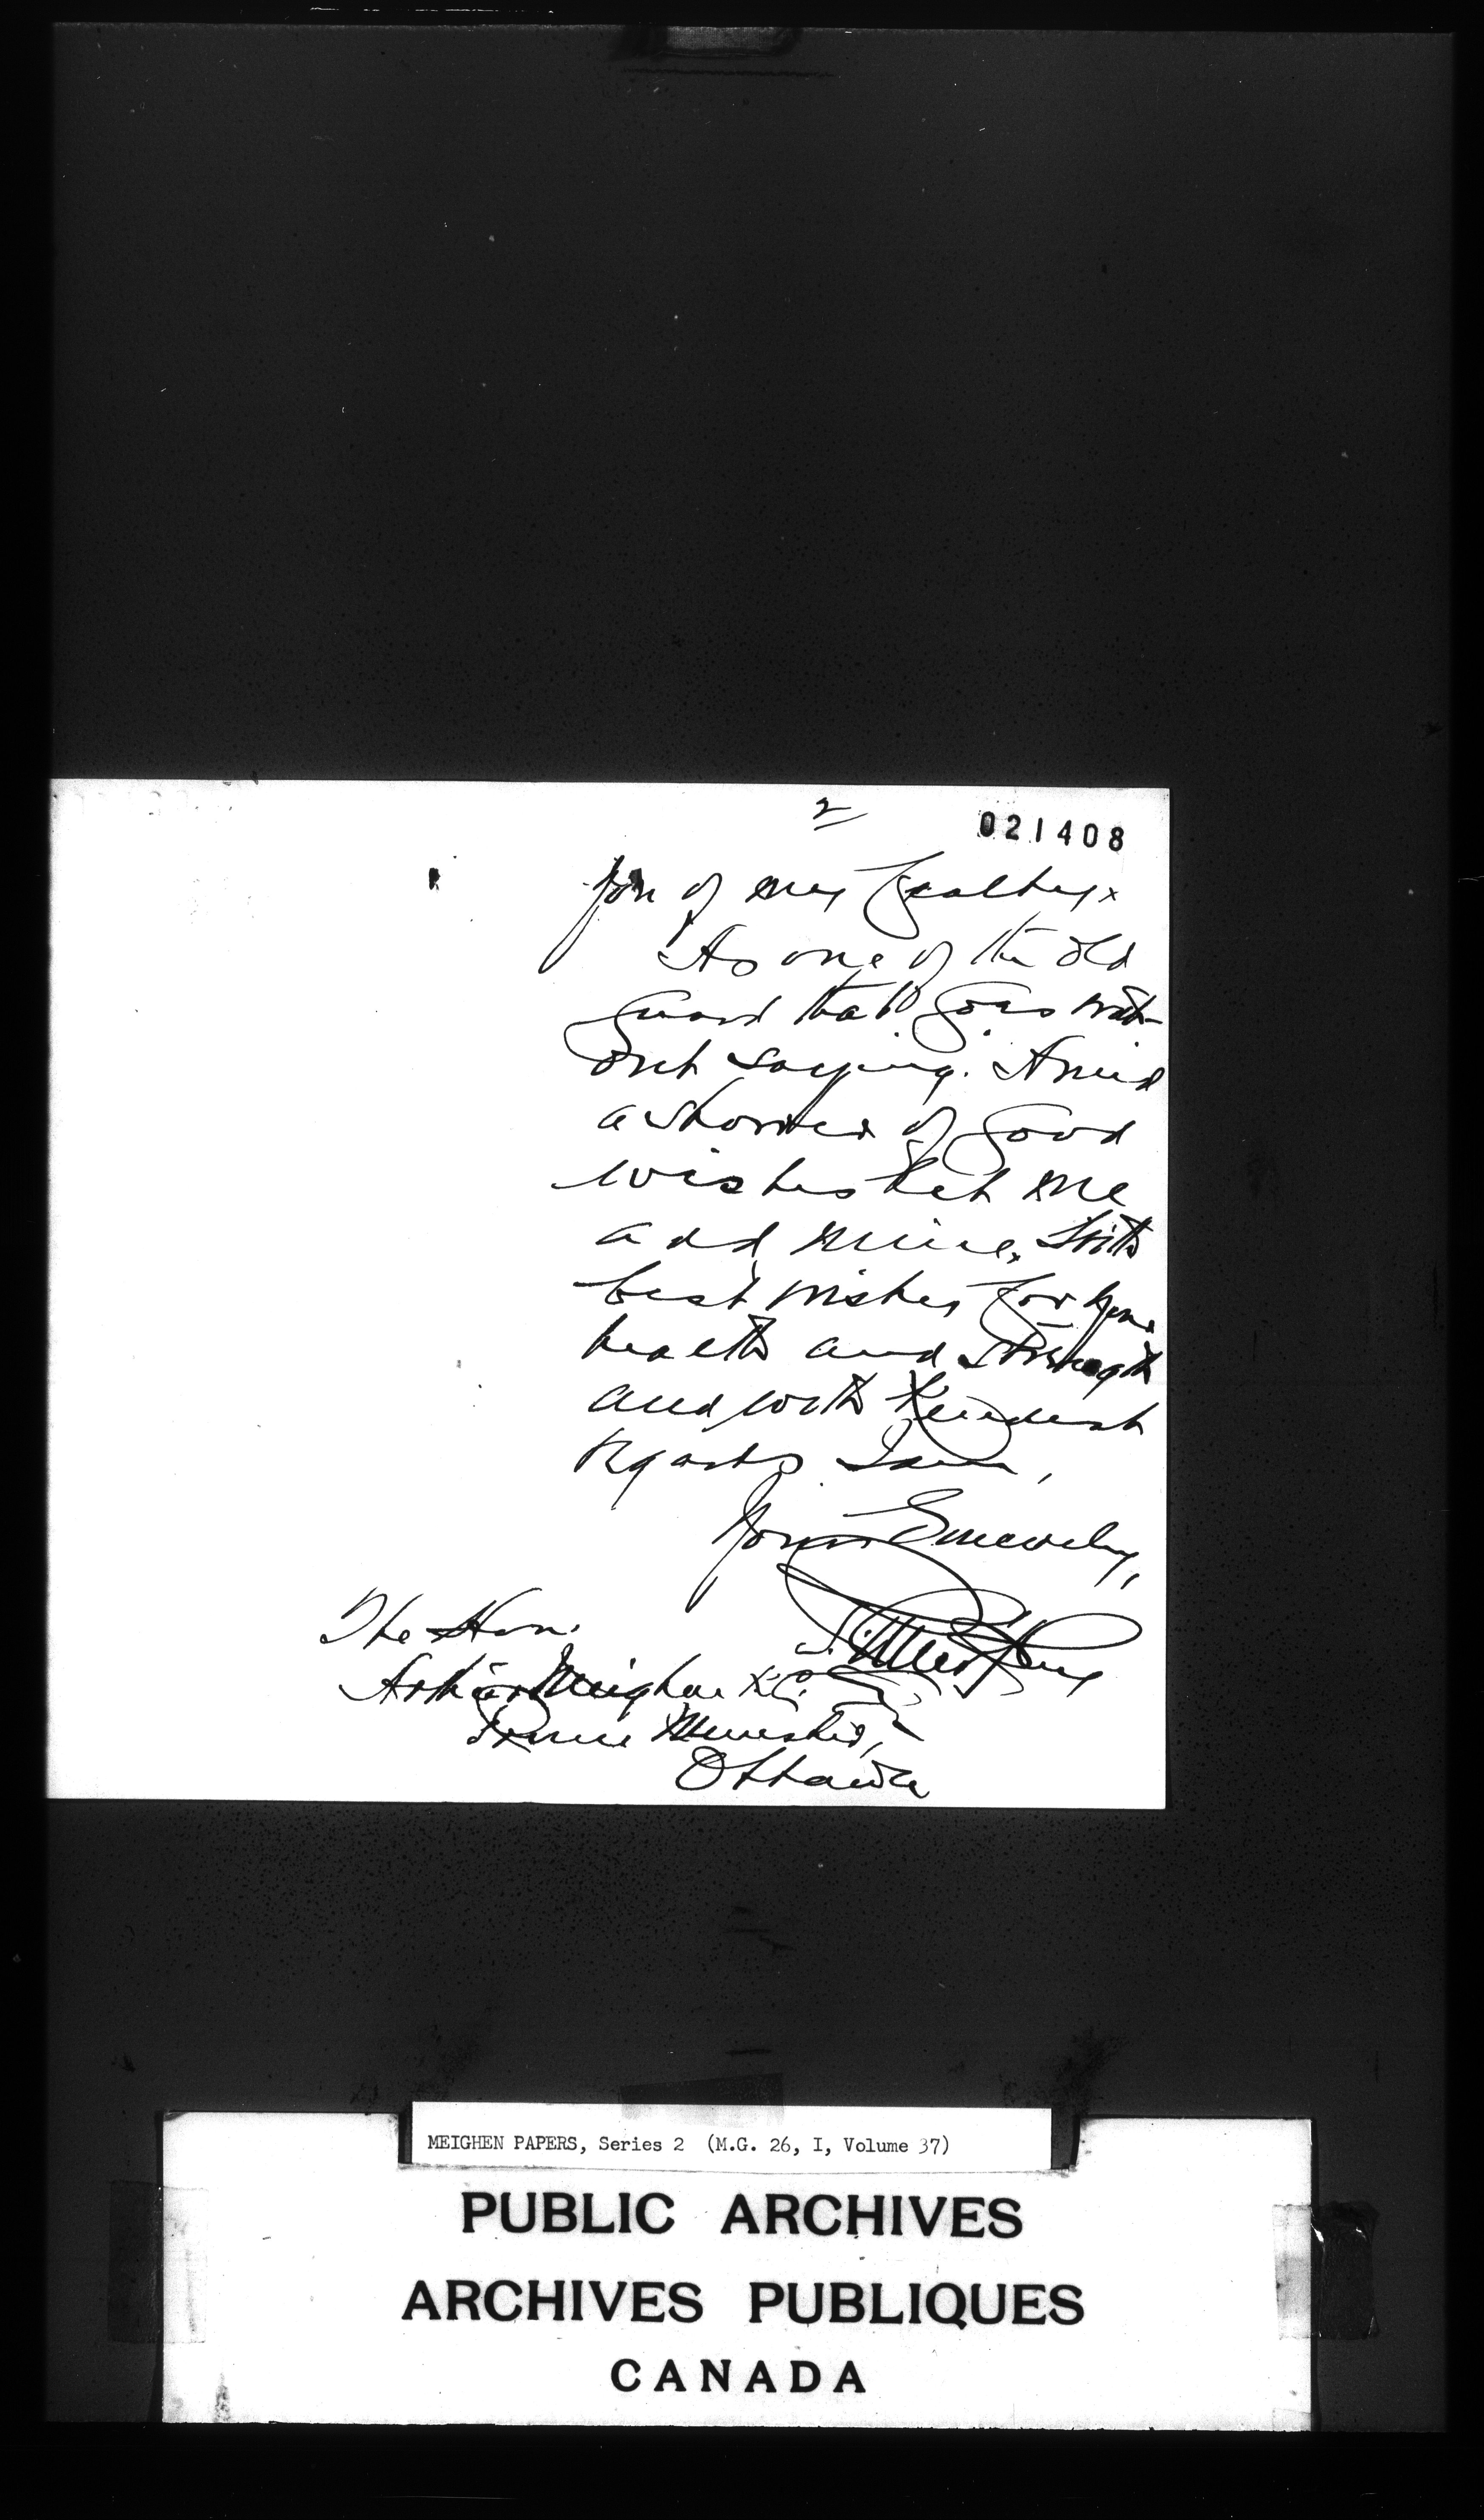 2
021408
you of my fealty.
As one of the old
Guard that goes with-
out saying. Amid
a shower of good
wishes let me
add mine. With
best wishes for your
health and strength
and with kindest
regards I am,
Yours Sincerely,
The Hon.
Arthur Meighen K.C.
Prime Minister,
Ottawa
MEIGHEN PAPERS, Series 2 (M.G. 26, I, Volume 37)
PUBLIC ARCHIVES
ARCHIVES PUBLIQUES
CANADA